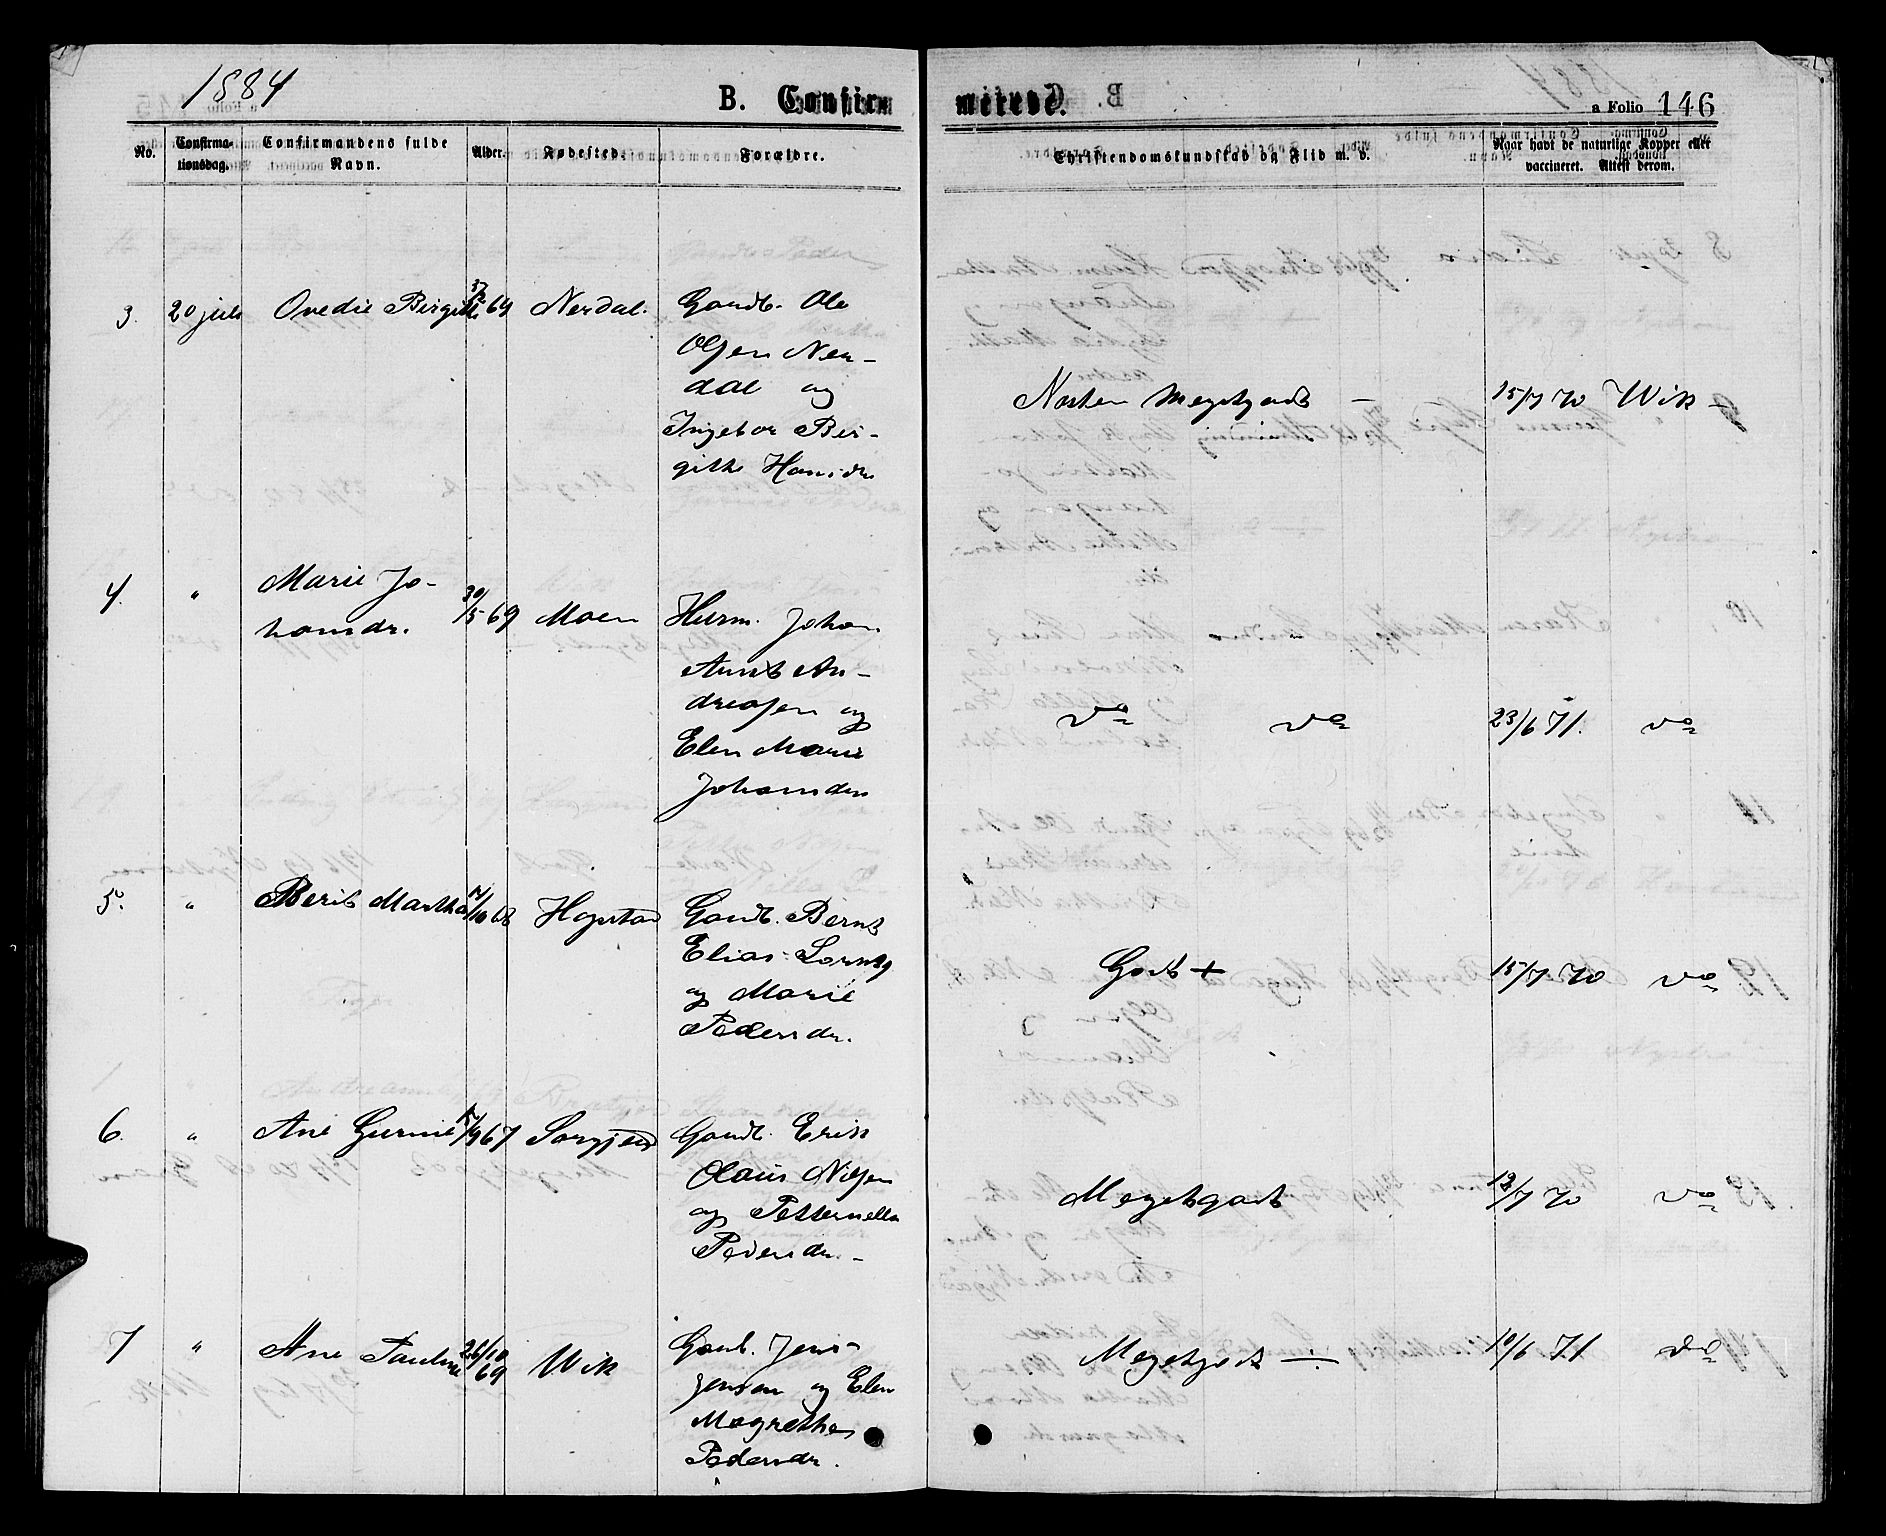 1884
B. Confir-
merede.
a Folio 146
No.
Confirma-
tionsdag.
Confirmandens fulde
Navn.
Alder.
Fødested.
Forældre.
Christendomskundskab og Flid m. v.
Naar havt de naturlige Kopper eller
vaccineret. Attest derom.
3. 20 juli Ovedie Birgitte 69 Nerdal. Gaardb. Ole
Olsen Ner-
dal og
Ingebor Bir-
gitte Hansdr
Næsten Megetgodt — 15/7 70 Wik —
4. " Marie Jo-
hansdr. 30/5 69 Moen Husm. Johan
Arnt An-
dreasen og
Elen Marie
Johansdr
do do 23/6 71. do
5. " Berit Martha 7/10 68 Hogstad Gaardb. Bernt
Elias
og Marie
Pedersdr.
Godt + 15/7 70 do
6. " Ane Gurine 67 Gaardb. Erik
Olaus Nilsen
og Petternella
Pedersdr. —
Megetgodt 13/7 70 do
7 " Ane Pauline 26/10
69 Wik Gaardb. Jens
Jensen og Elen
Magrethe
Pedersdr.
Megetgodt ÷ 10/6 71 do